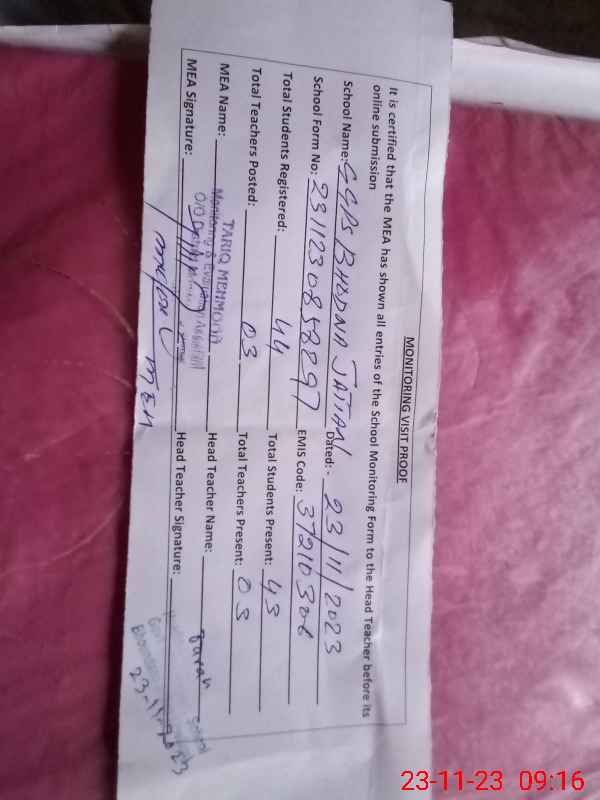 MONITORING VISIT PROOF
It is certified that the MEA has shown all entries of the School Monitoring Form to the Head Teacher before its
online submission
School Name: GGPS BHUDNA JATTAL Dated:- 23/11/2023
School Form No: 23112308 EMIS Code: 37210306
Total Students Registered: 44 Total Students Present: 43
Total Teachers Posted: 03 Total Teachers Present: 03
MEA Name: TARIQ MEHMOOD Head Teacher Name: Farah
Monitoring & Evaluation Assistant
MEA Signature: Head Teacher Signature:
MEA
23-11-2023
23-11-23 09:16